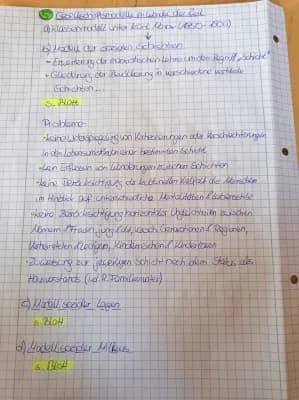 5 Gesellschaftsmodelle im Wandel der Zeit
a) Klassenmodell unter Karl Marx (1850-1900)
↓
b) Modell der sozialen Schichten
- Erweiterung der marxistischen Lehre um den Begriff "Schicht"
- Gliederung der Bevölkerung in verschiedene vertikale
Schichten...
s. Blatt
Probleme:
- keine Widerspiegelung von Verbesserungen oder Verschlechterungen
in den Lebensumständen einer bestimmten Schicht
- kein Erfassen von Wanderungen zwischen Schichten
- keine Berücksichtigung der kulturellen Vielfalt der Menschen
im Hinblick auf unterschiedliche Mentalitäten & Lebensstile
- keine Berücksichtigung horizontaler Ungleichheiten zwischen
Männern & Frauen, jung & alt, Generationen & Regionen,
Religionen, Kinderreichen & Kinderlosen
- Zuweisung zur jeweiligen Schicht nach dem Status des
Hausvorstands (i.d.R. Familienvater)
c) Modell sozialer Lagen
s. Blatt
d) Modell sozialer Milieus
s. Blatt